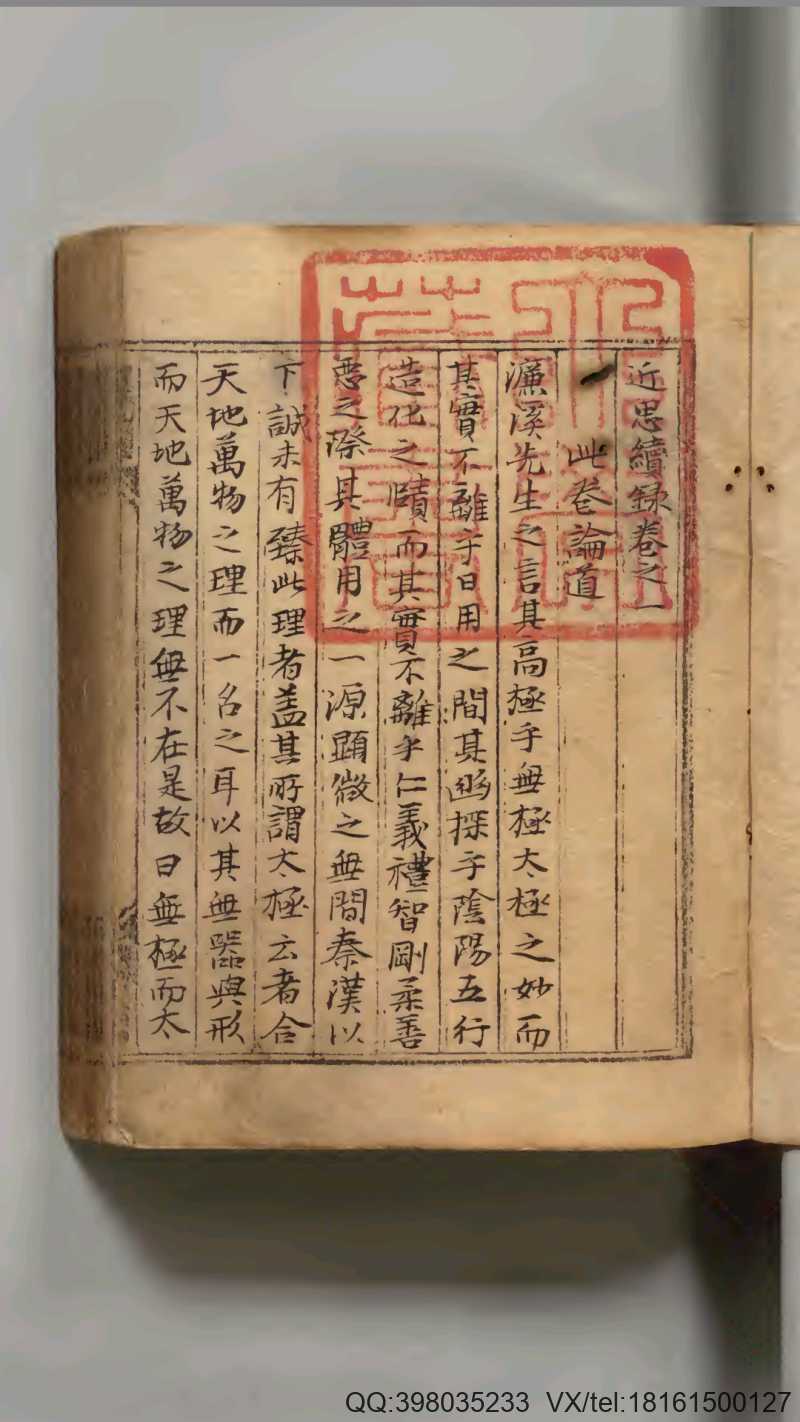 近思續錄卷之一
此卷論道
濂溪先生之言其高極乎無極太極之妙而
其實不離乎日用之間其幽探乎陰陽五行
造化之賾而其實不離乎仁義禮智剛柔善
惡之際其體用之一源顯微之無間秦漢以
下誠未有臻此理者盖其所謂太極云者合
天地萬物之理而一名之耳以其無器與形
而天地萬物之理無不在是故曰無極而太
QQ:398035233 VX/tel:18161500127